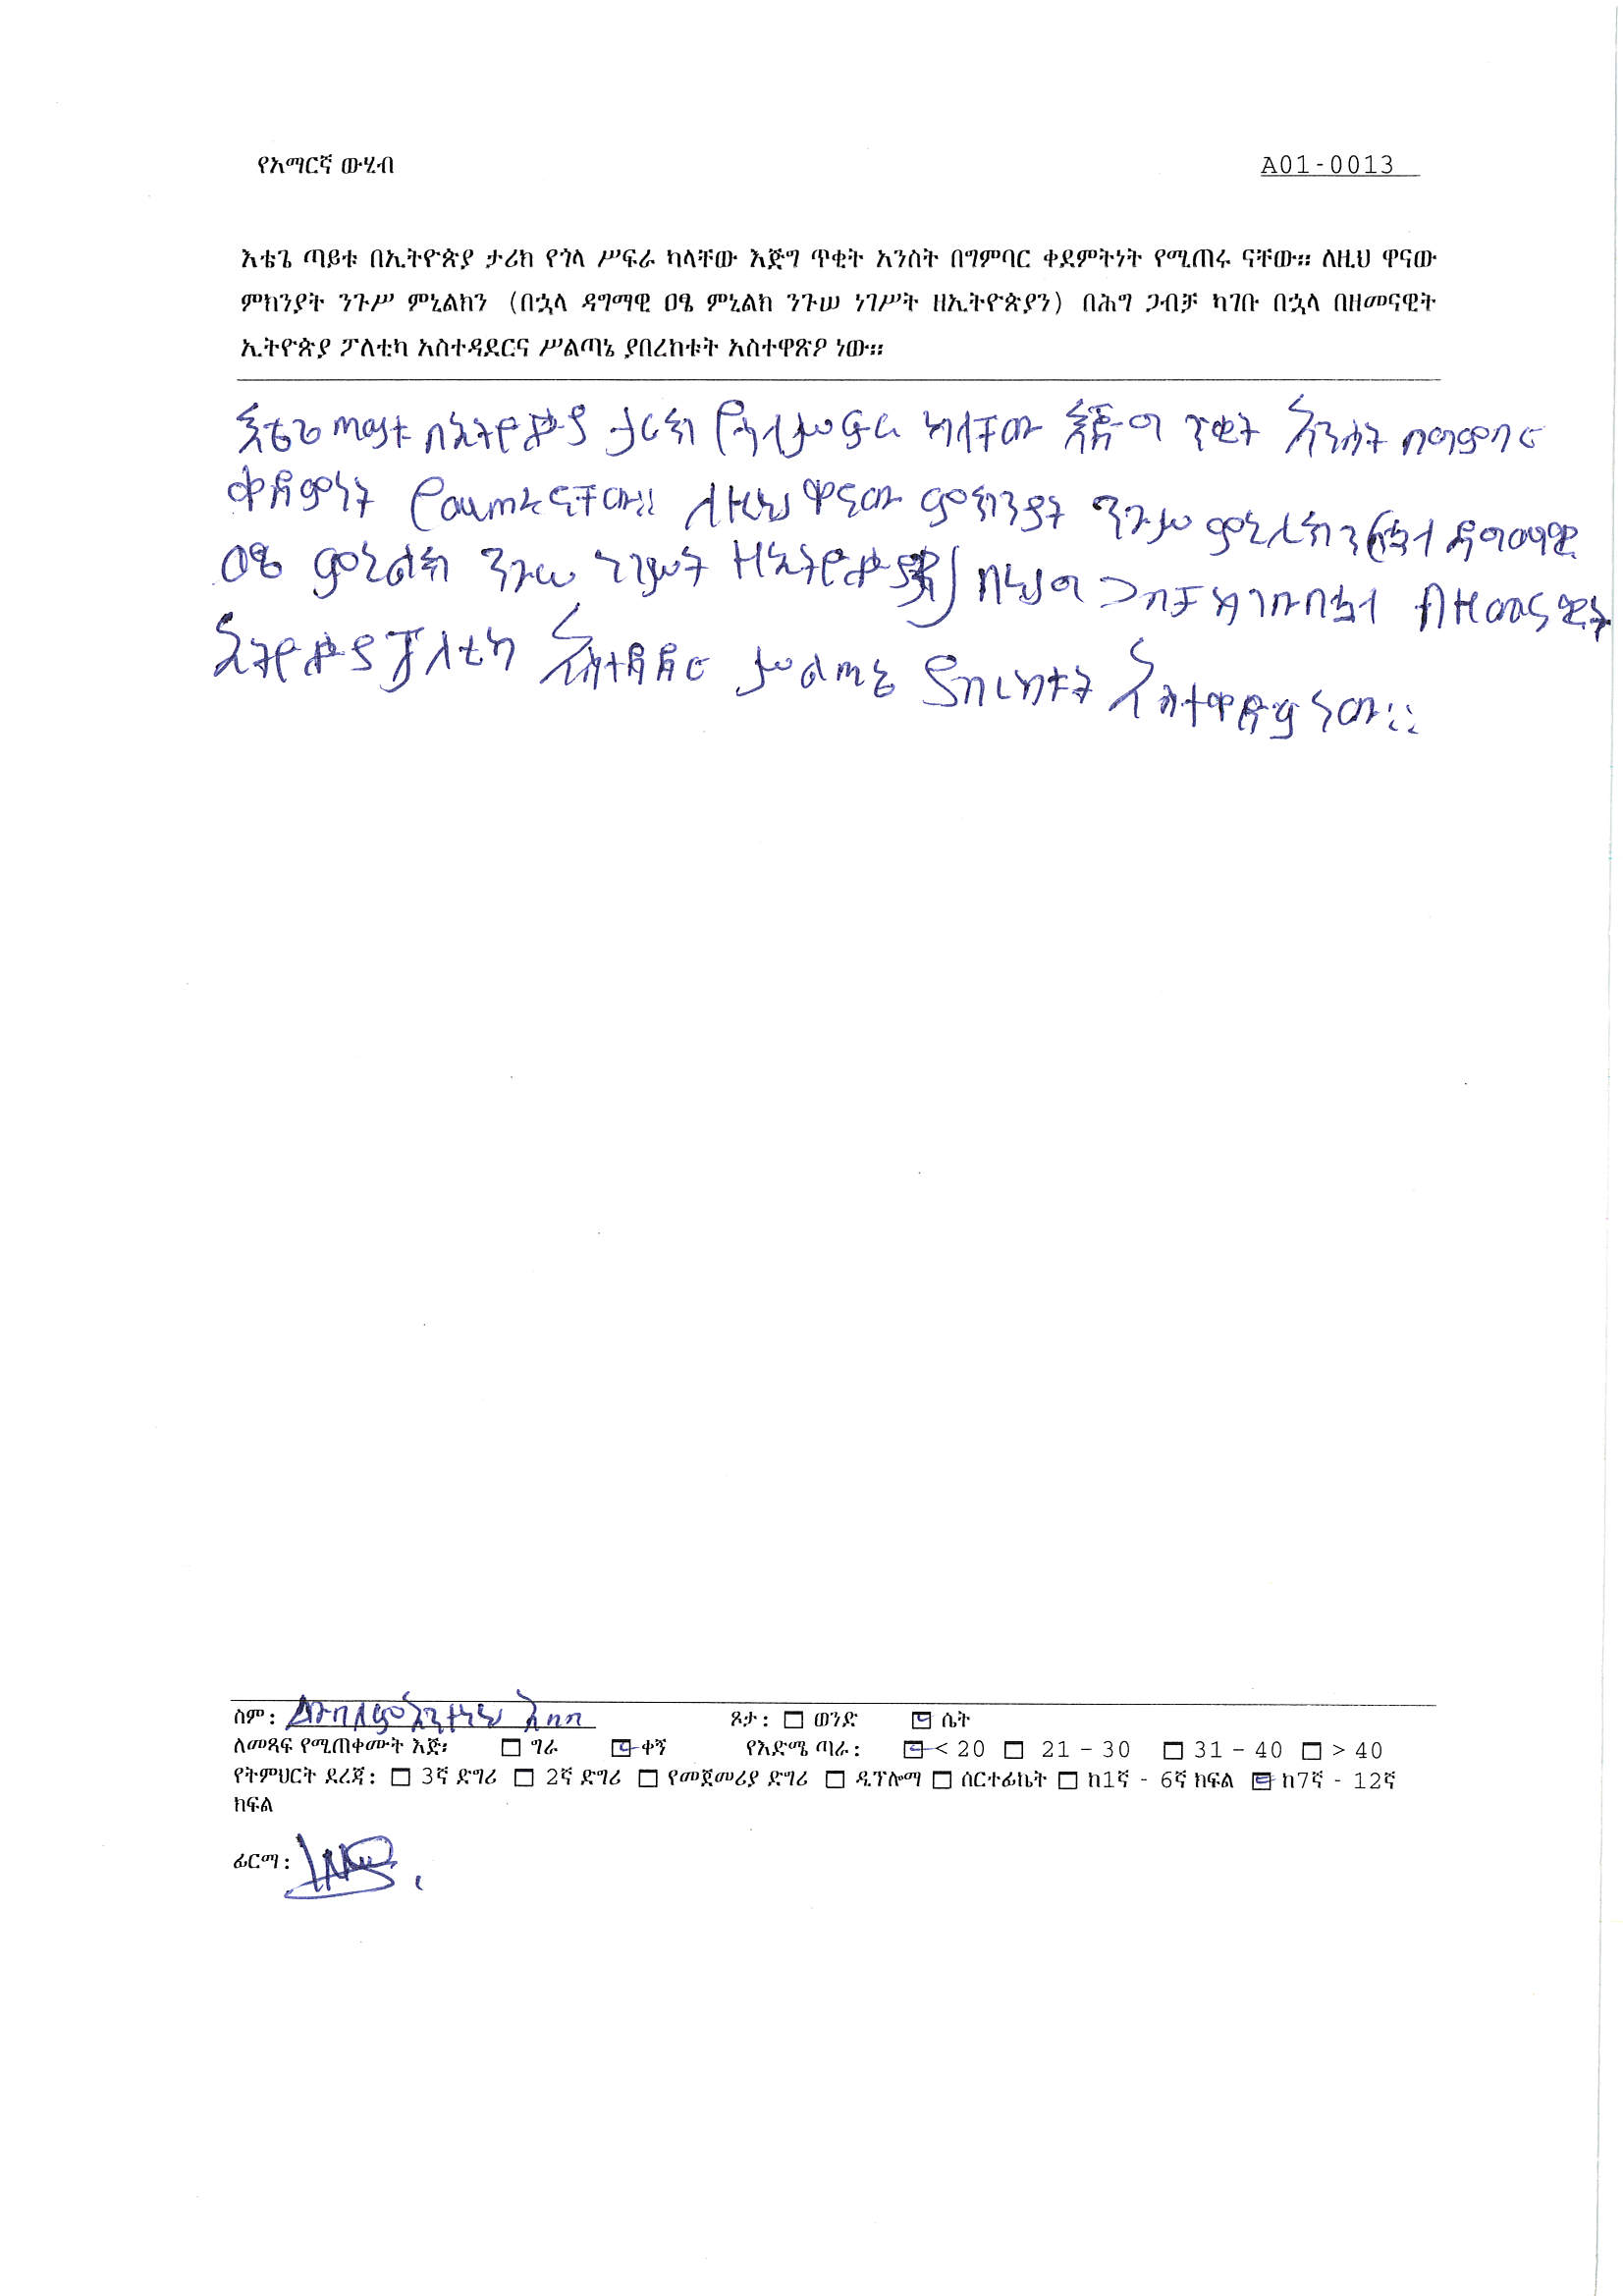 የአማርኛ ውሂብ
A01-0013
እቴጌ ጣይቱ በኢትዮጵያ ታሪክ የጎላ ሥፍራ ካላቸው እጅግ ጥቂት አንስት በግምባር ቀደምትነት የሚጠሩ ናቸው። ለዚህ ዋናው
ምክንያት ንጉሥ ምኒልክን (በኋላ ዳግማዊ ዐፄ ምኒልክ ንጉሠ ነገሥት ዘኢትዮጵያን) በሕግ ጋብቻ ካገቡ በኋላ በዘመናዊት
ኢትዮጵያ ፖለቲካ አስተዳደርና ሥልጣኔ ያበረከቱት አስተዋጽዖ ነው።
እቴጌ ጣይቱ በኢትዮጵያ ታሪክ የጎላ ሥፍራ ካላቸው እጅግ ጥቂት አንስት በግምባር
ቀዳምነት የሚጠሩ ናቸው። ለዚህ ዋናው ምክንያት ንጉሥ ምኒሊክን (በኋላ ዳግማዊ
ዐፄ ምኒልክ ንጉሠ ነገሥት ዘኢትዮጵያን) በሕግ ጋብቻ ካገቡ በኋላ በዘመናዊት
ኢትዮጵያ ፖለቲካ አስተዳደር ሥልጣኔ ያበረከቱት አስተዋጽዖ ነው።
ስም: ጾታ: ወንድ ሴት
ለመጻፍ የሚጠቀሙት እጅ: ግራ ቀኝ የእድሜ ጣራ: < 20 21 - 30 31 - 40 > 40
የትምህርት ደረጃ: 3ኛ ድግሪ 2ኛ ድግሪ የመጀመሪያ ድግሪ ዲፕሎማ ሰርተፊኬት ከ1ኛ - 6ኛ ክፍል ከ7ኛ - 12ኛ
ክፍል
ፊርማ: